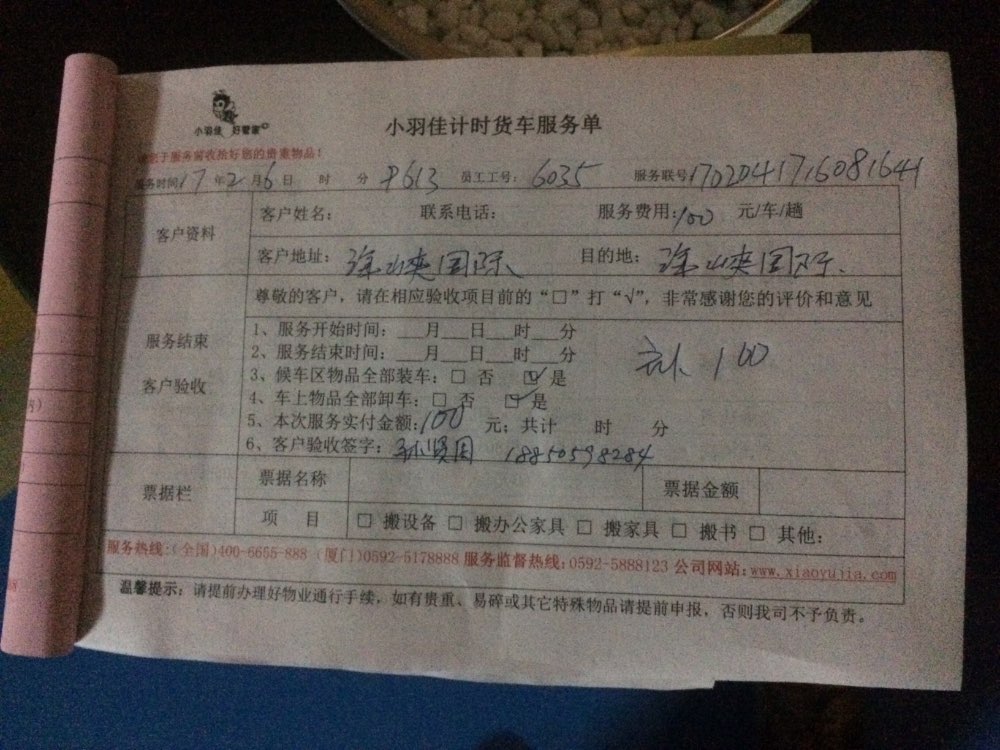 小羽佳 好管家
小羽佳计时货车服务单
请您于服务前收拾好您的贵重物品！
服务时间17年2月6日 时 分 8613 员工工号：6035 服务联号1702041716081641
客户资料
客户姓名： 联系电话： 服务费用：100 元/车/趟
客户地址： 国际 目的地： 国际
尊敬的客户，请在相应验收项目前的“□”打“√”，非常感谢您的评价和意见
服务结束
客户验收
1、服务开始时间：___月___日___时___分
2、服务结束时间：___月___日___时___分
3、候车区物品全部装车：□ 否 ☑ 是
4、车上物品全部卸车：□ 否 ☑ 是
100
5、本次服务实付金额：100 元；共计 时 分
6、客户验收签字： 18850598284
票据栏
票据名称 票据金额
项 目 □ 搬设备 □ 搬办公家具 □ 搬家具 □ 搬书 □ 其他：
服务热线：(全国)400-6655-888 (厦门)0592-5178888 服务监督热线：0592-5888123 公司网站：www.xiaoyujia.com
温馨提示：请提前办理好物业通行手续，如有贵重、易碎或其它特殊物品请提前申报，否则我司不予负责。